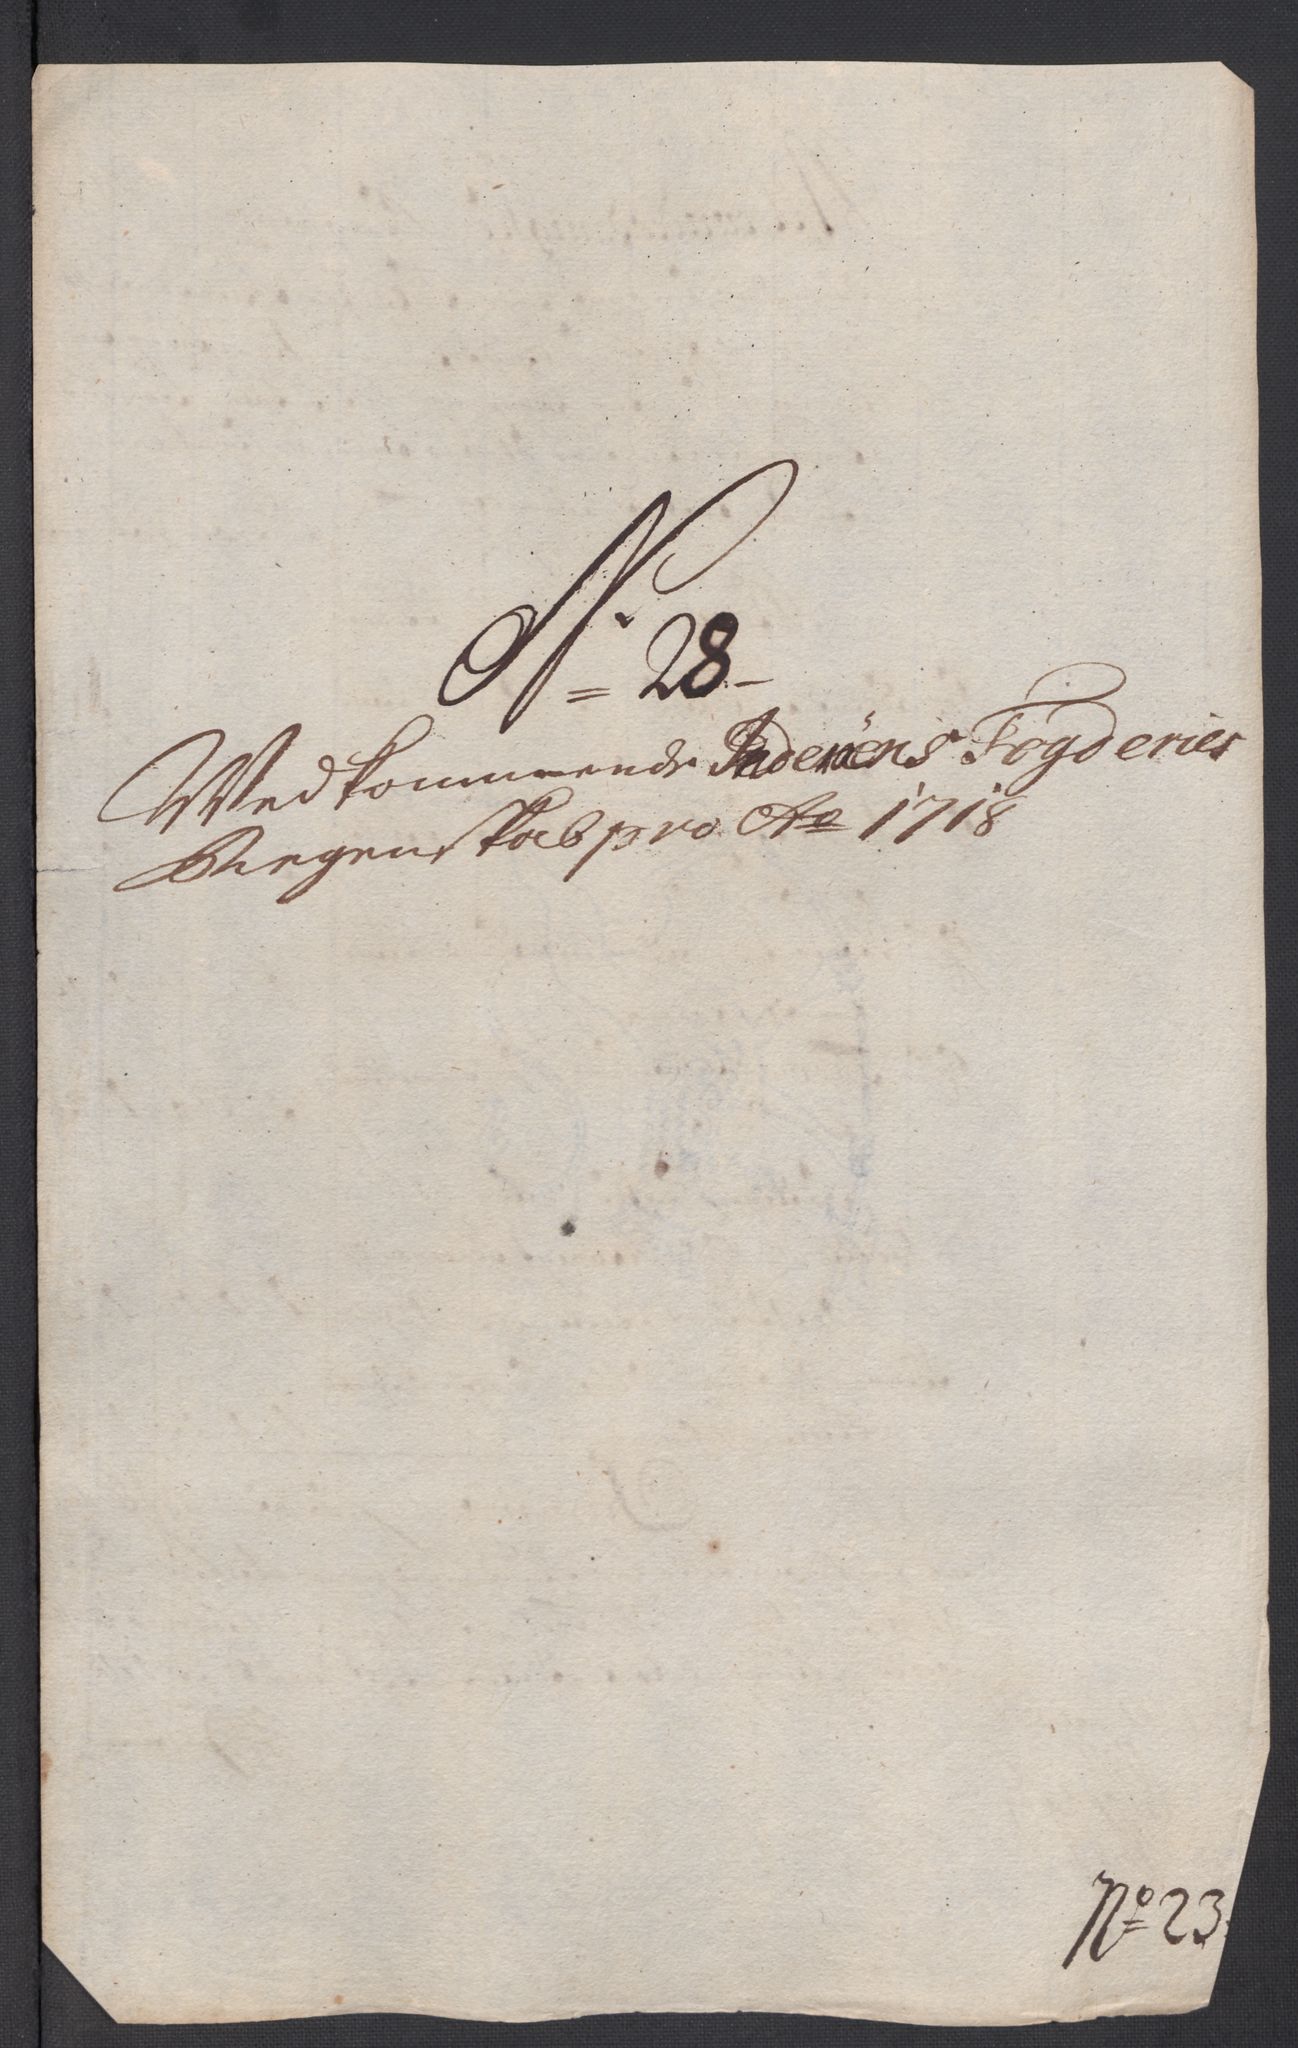 N. 28
Wedkommende Inderöens Fogderies
Regenskab pro Ao 1718
No 23.